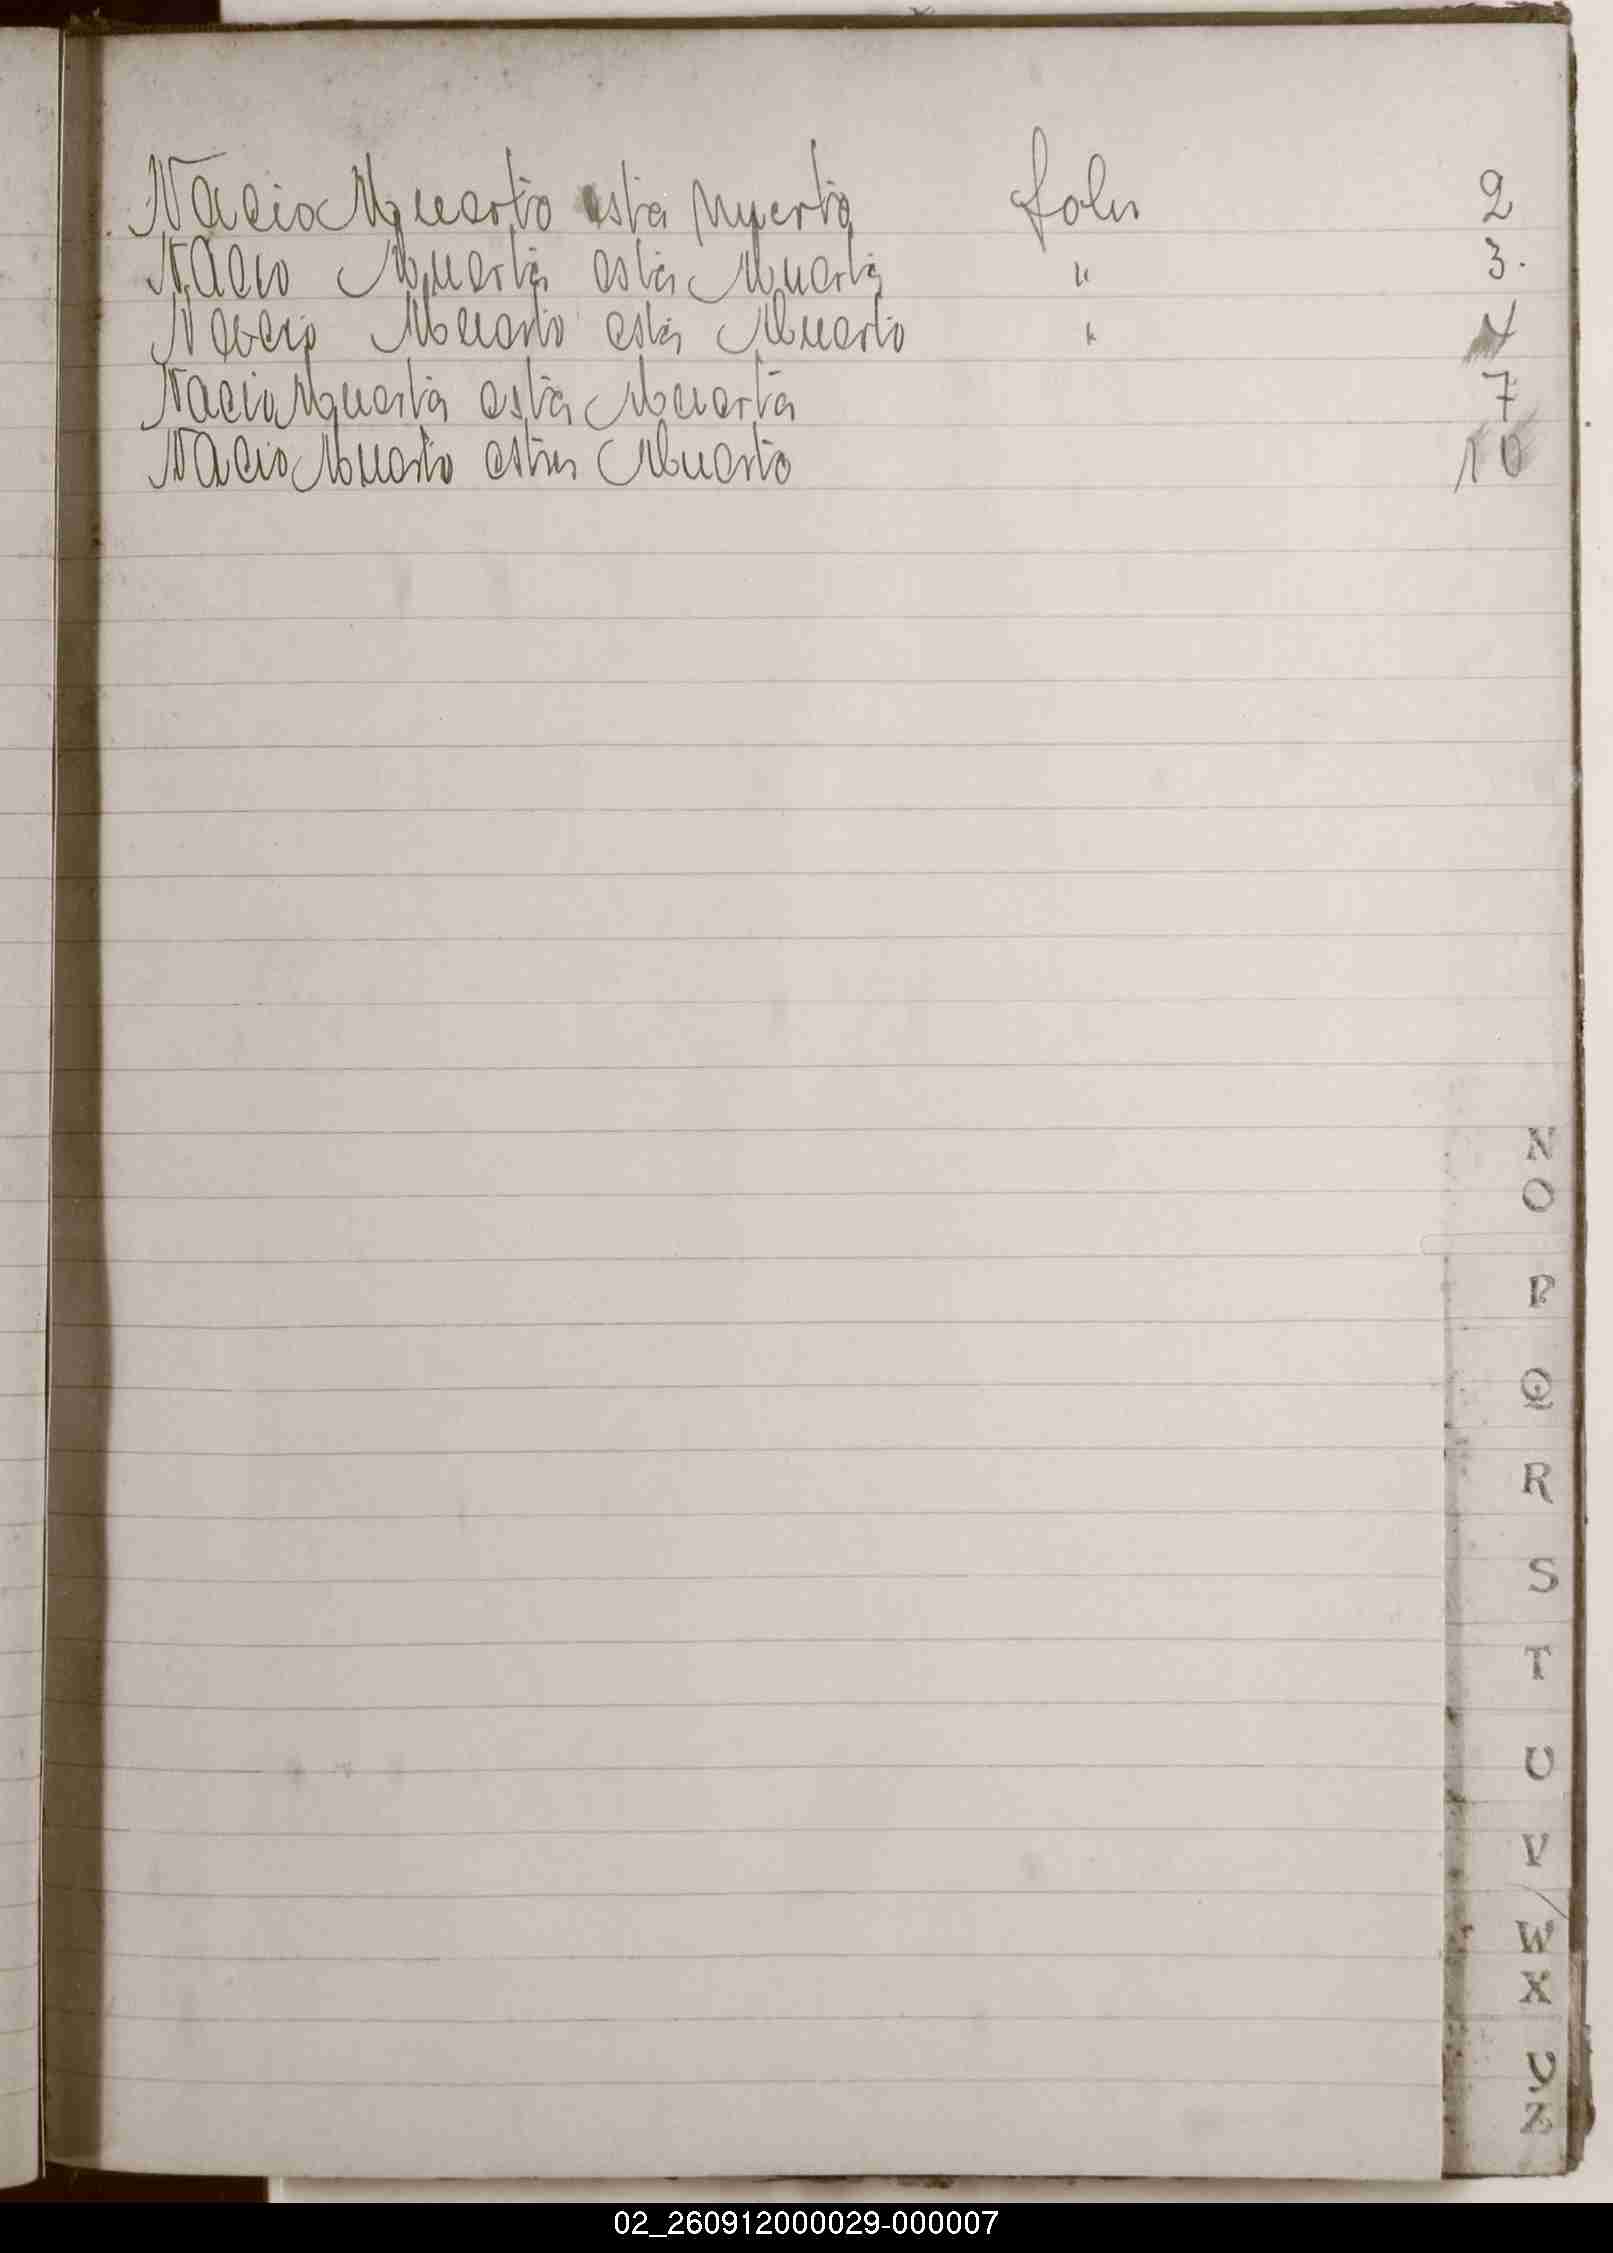 Nacio Muerto esta Muerto folio 2
Nacio Muerta esta Muerta " 3.
Nacio Muerto esta Muerto " 4
Nacio Muerta esta Muerta 7
Nacio Muerto esta Muerto 10
N
O
P
Q
R
S
T
U
V
W
X
Y
Z
02_260912000029-000007